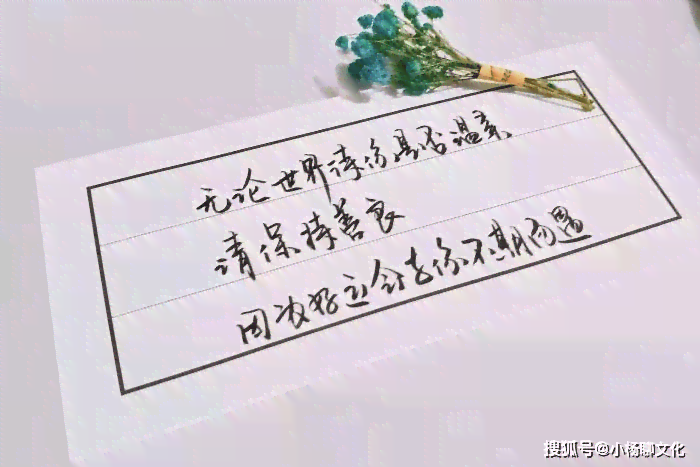 无论世界待你是否温柔
请保持善良
因为好运会与你不期而遇
搜狐号@小杨聊文化